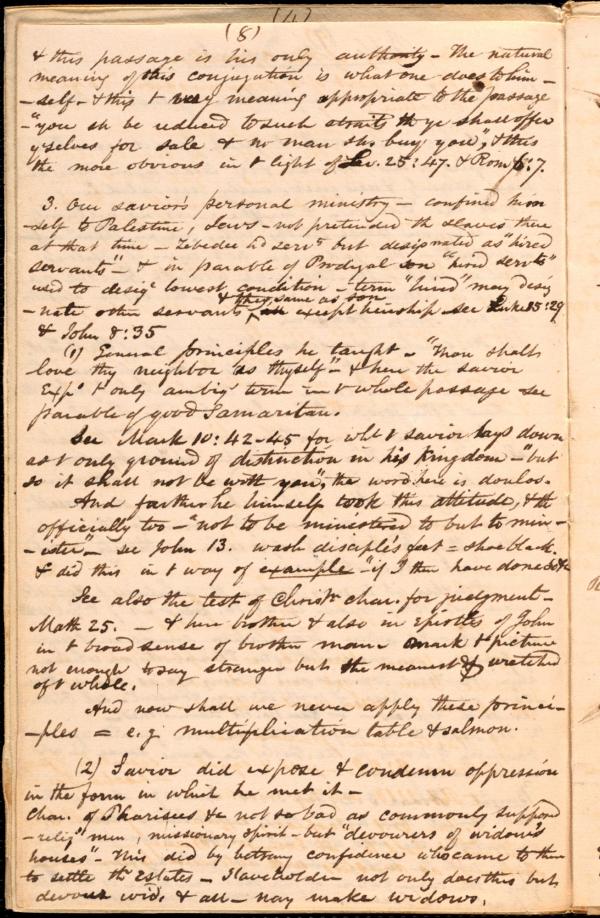 (4)
(8)
& this passage is his only authority - The natural
meaning of this conjugation is what one does to him -
- self - & this t very meaning appropriate to the passage
- "you sh be reduced to such straits th ye shall offer
y'selves for sale & no man sh. buy you", & this
the more obvious in t light of Lev. 25:47. & Rom 6:7.
3. Our savior's personal ministry - confined him
- self to Palestine, Jews - not pretended th slaves there
at that time - Zebedee hd servts but designated as "hired
servants" - & in parable of Prodigal son "hired servts"
used to desig lowest condition - term "hired" may desig
& they same as son
- nate other servants except heirship see Luke 15:29
& John 8:35
(1) General principles he taught - "Thou shalt
love thy neighbor as thyself" - & here the savior
Expd t only ambigs term in t whole passage see
parable of good Samaritan.
See Mark 10:42-45 for wht t savior lays down
as t only ground of distinction in his kingdom - "but
so it shall not be with you", the word here is doulos.
And farther he himself took this attitude, & th
officially too - "not to be ministered to but to min -
- ister" - see John 13. wash disciple's feet = shoeblack.
& did this in t way of example - "if I then have done &c
See also the test of Christn char. for judgment -
Math 25. - & here brother & also in Epistles of John
in t broad sense of brother man. mark t picture
not enough to say stranger but the meanest & wretched
of t whole.
And now shall we never apply these princi -
- ples = e.g. multiplication table & salmon.
(2) Savior did expose & condemn oppression
in the form in which he met it -
Char. of Pharisees &c not so bad as commonly supposed
- religs men, missionary spirit - but "devourers of widow's
houses" - This did by betraying confidence who came to them
to settle thr Estates - Slaveholder not only does this but
devour wid. & all - nay make widows.